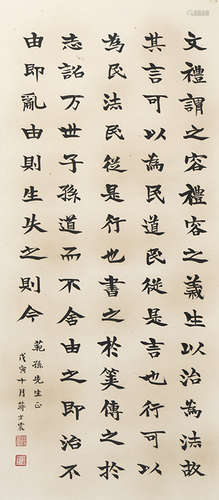 文禮謂之容禮容之義生以治為法故
其言可以為民道民從是言也行可以
為民法民從是行也書之於策傳之於
志詔万世子孫道而不舍由之即治不
由即亂由則生失之則今
範孫先生正
戊寅十月蔣士